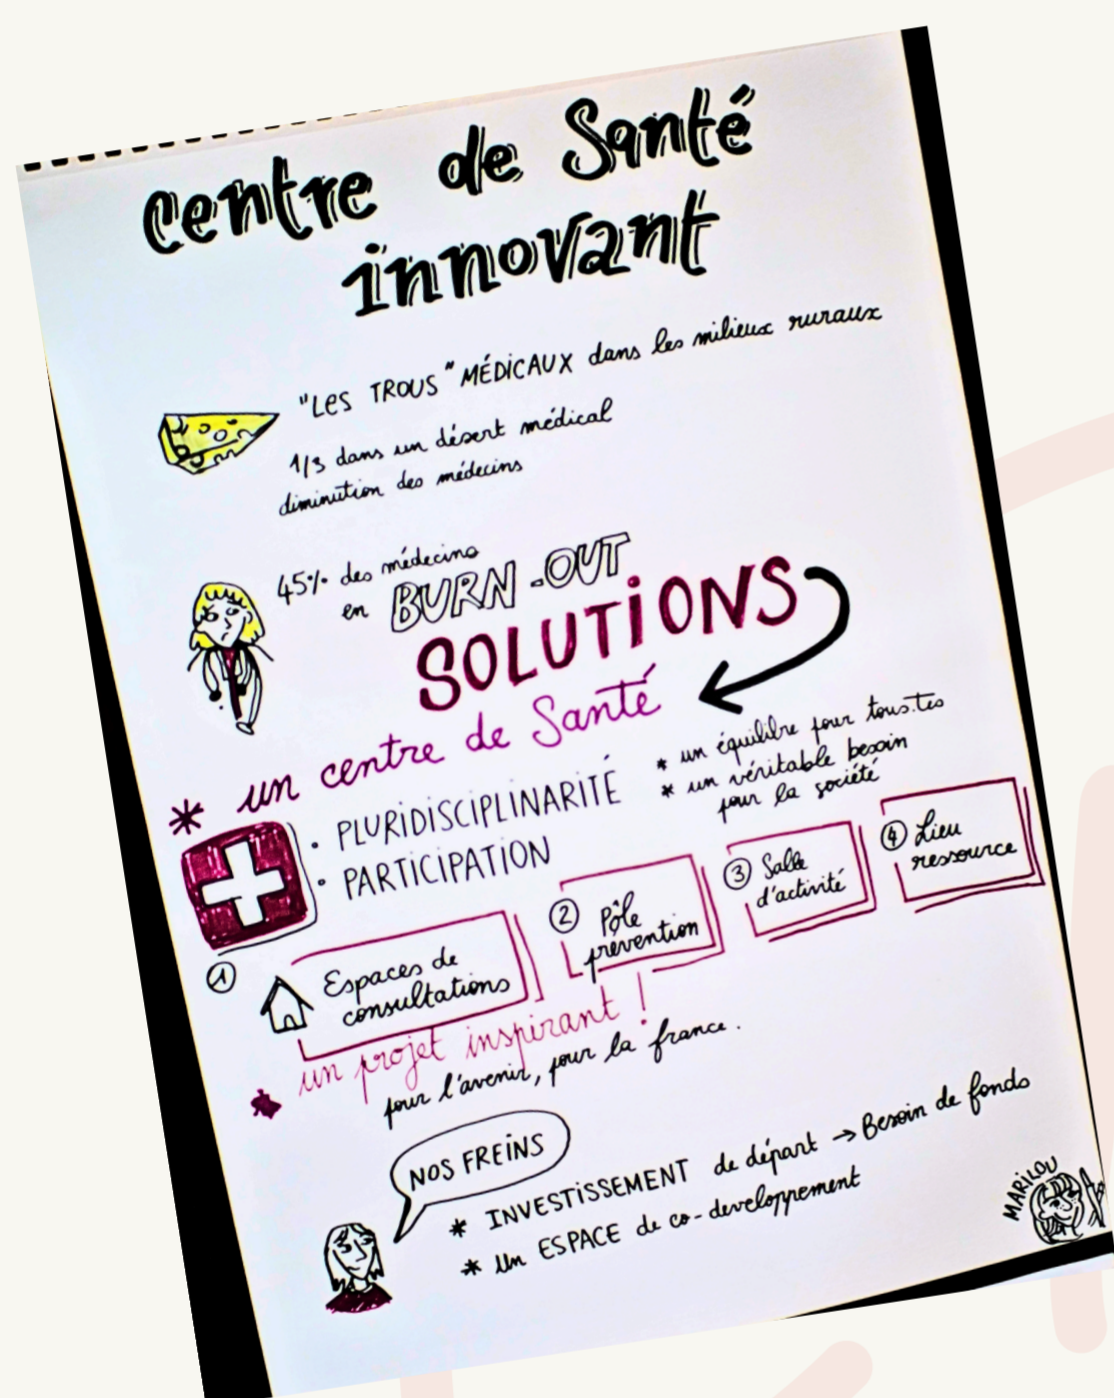 Centre de Santé
innovant
"LES TROUS" MÉDICAUX dans les milieux ruraux
1/3 dans un désert médical
diminution des médecins
45% des médecins
en BURN-OUT
SOLUTIONS
* un centre de Santé
* un équilibre pour tous.tes
* un véritable besoin
pour la société
• PLURIDISCIPLINARITÉ
• PARTICIPATION
① Espaces de
consultations
② Pôle
prévention
③ Salle
d'activité
④ Lieu
ressource
* un projet inspirant !
pour l'avenir, pour la france.
NOS FREINS
* INVESTISSEMENT de départ → Besoin de fonds
* Un ESPACE de co-developpement
MARILOU